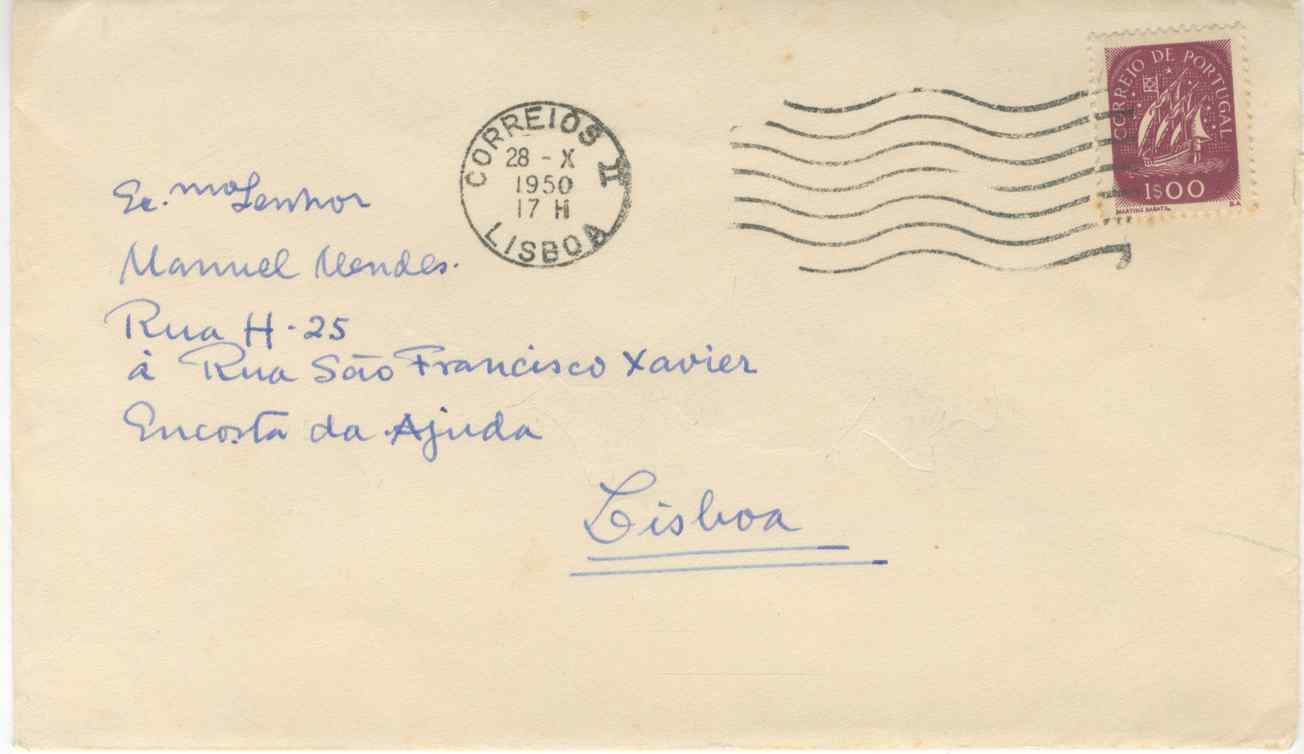 CORREIO DE PORTUGAL
1$00
MARTINS BARATA
CORREIOS II
28 - X
1950
17 H
LISBOA
Ex.mo Senhor
Manuel Mendes.
Rua H - 25
à Rua São Francisco Xavier
Encosta da Ajuda
Lisboa